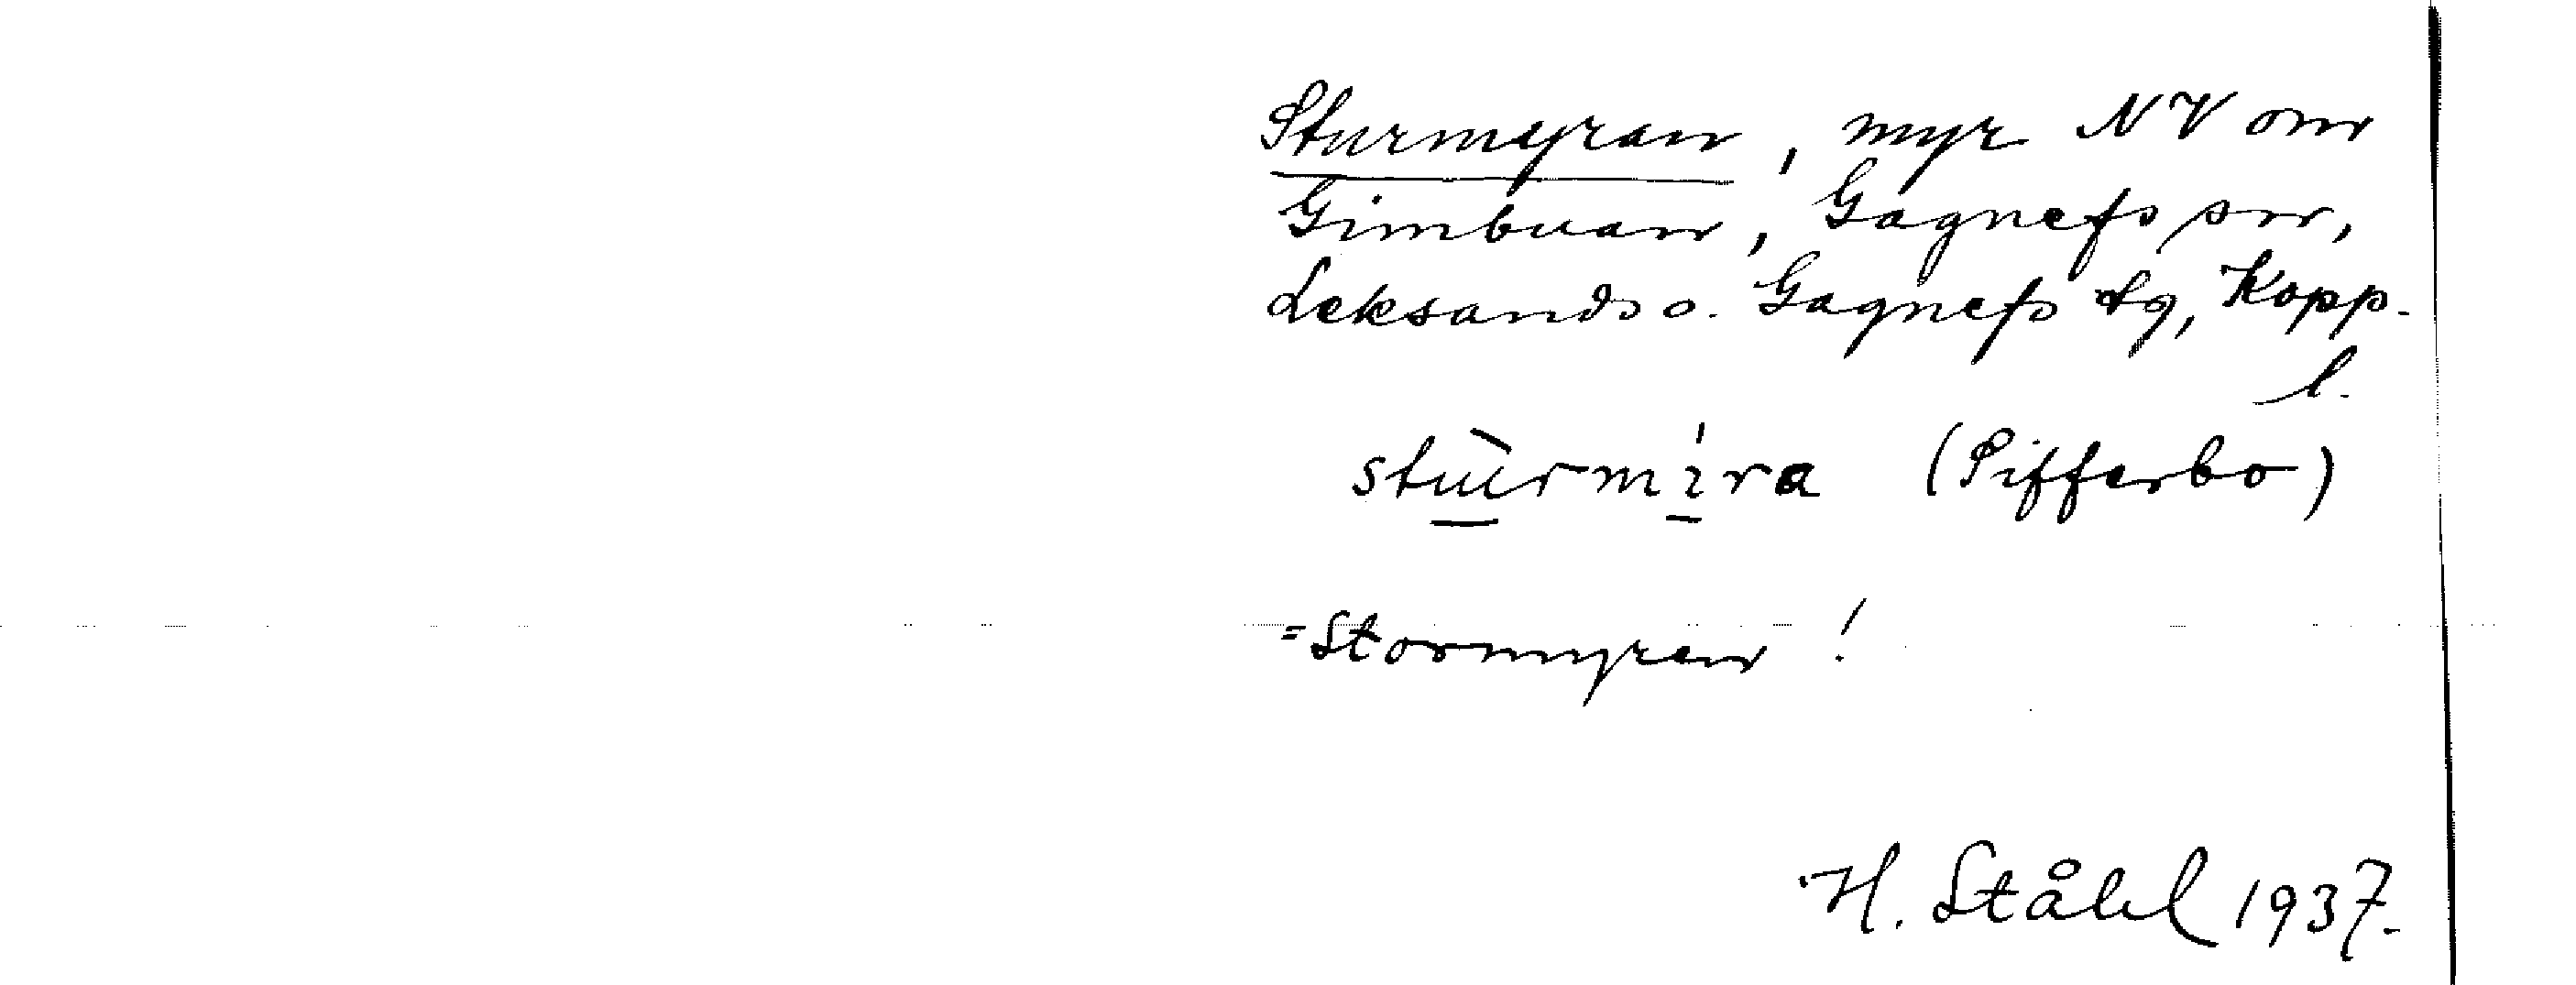 Sturmyran, myr NV om
Gimbuan, Gagnefs sn,
Leksands o. Gagnefs tg, Kopp.
l.
stùrmíra (Sifferbo)
=Stormyran!
H. Ståhl 1937.